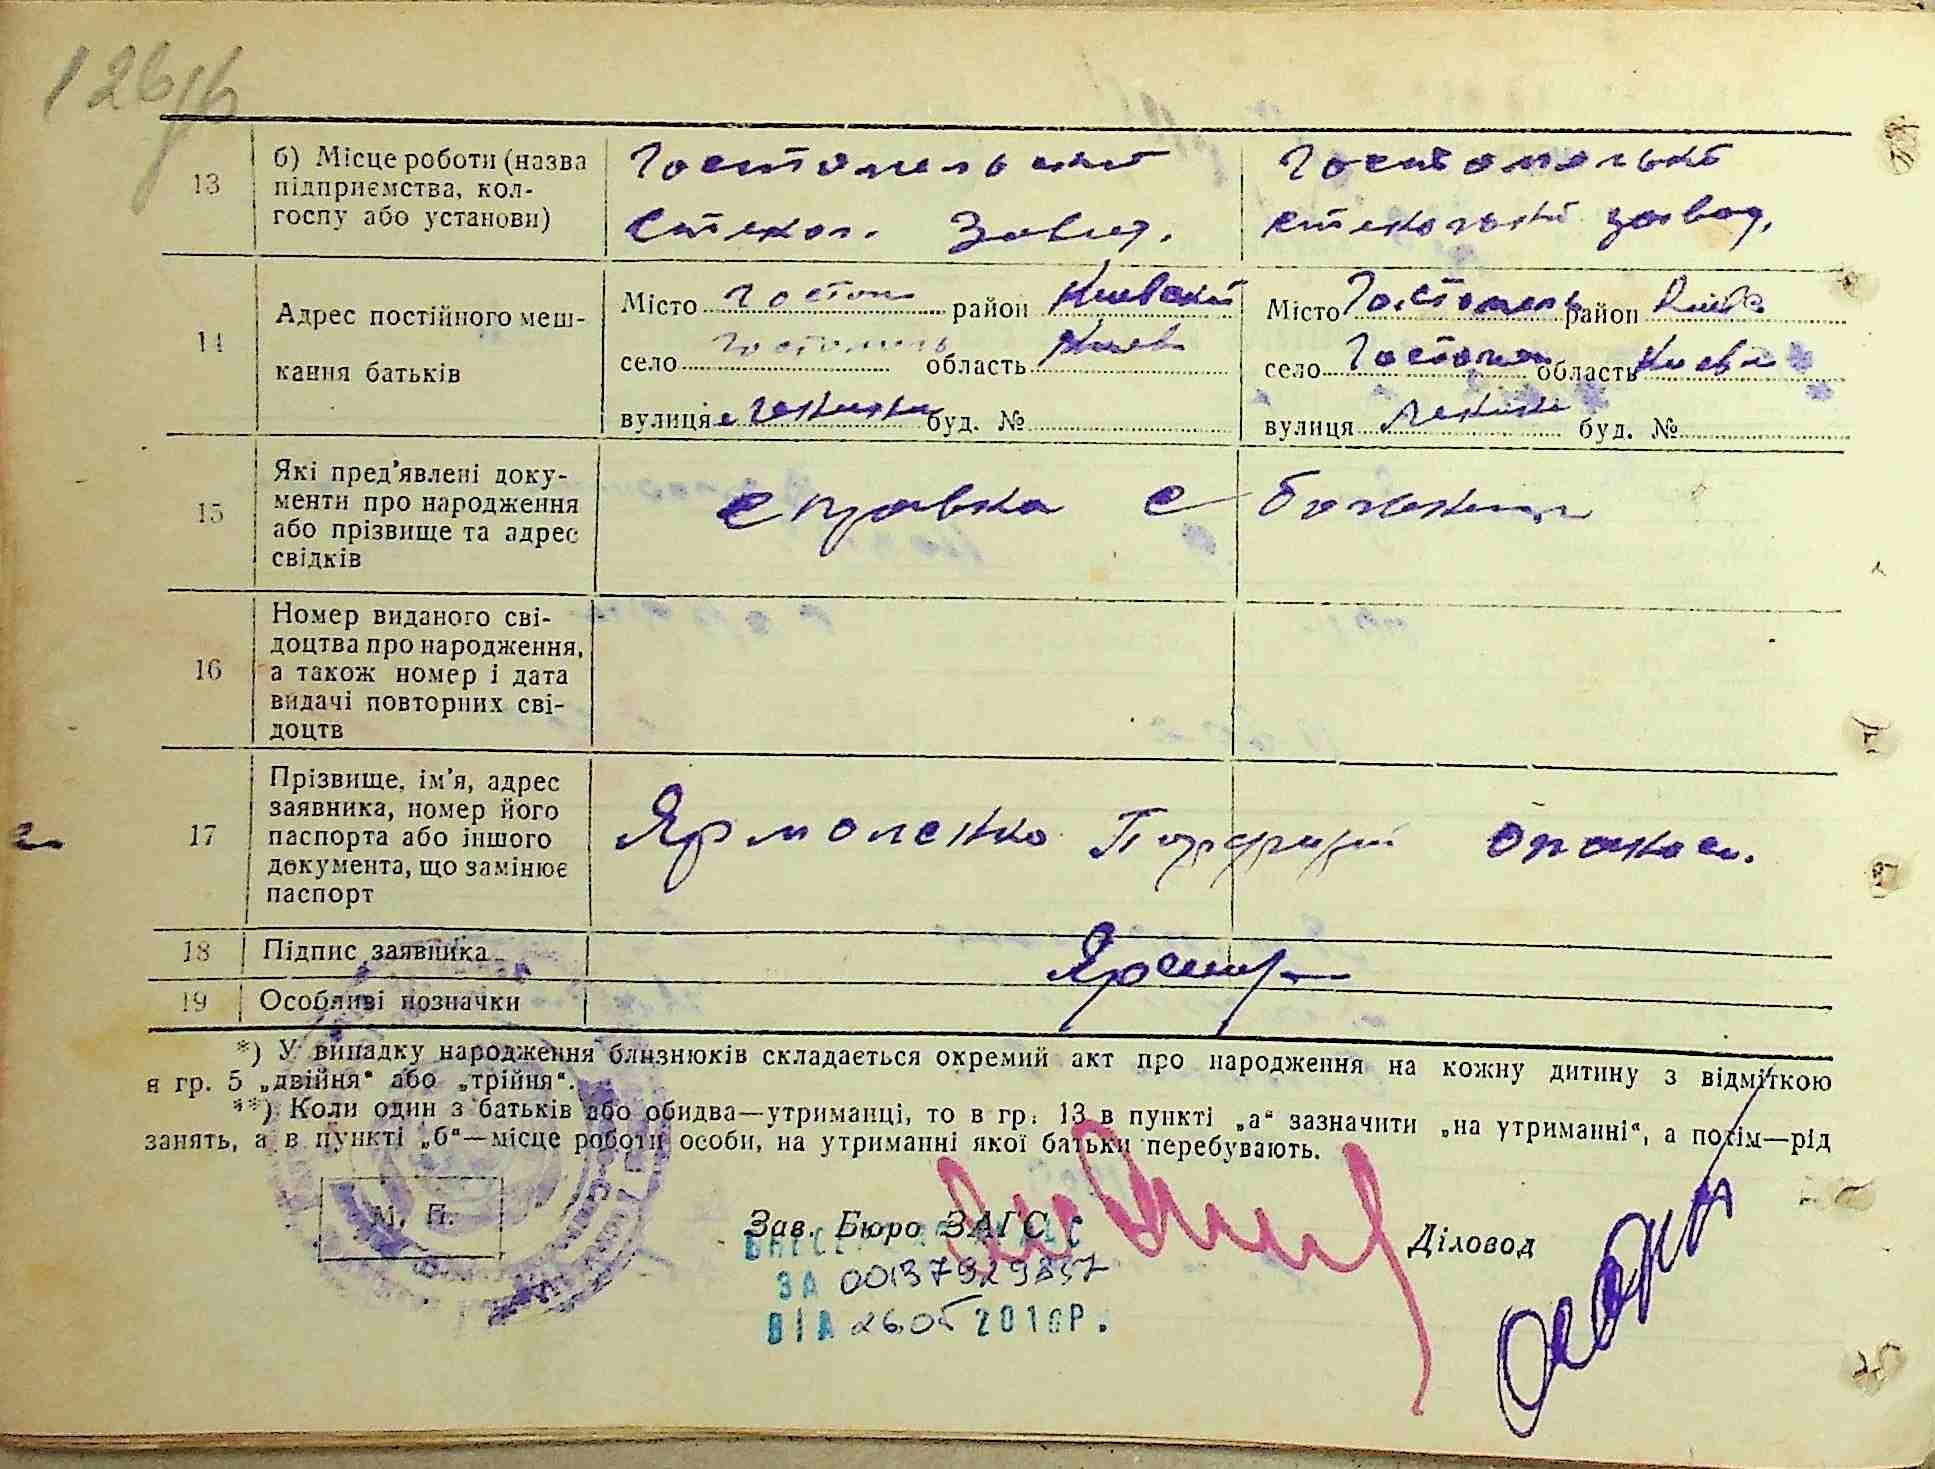 126
13
б) Місце роботи (назва
підприємства, кол-
госпу або установи)
Гостомельский
Стекол. Завод.
Гостомельский
стекольный завод.
14
Адрес постійного меш-
кання батьків
Місто Гостом район Киевский
село Гостомель область Киев
вулиця Ленина буд. №
Місто Гостомель район Киев
село Гостомел область Киевск
вулиця Ленина буд. №
15
Які пред’явлені доку-
менти про народження
або прізвище та адрес
свідків
справка с больницы
16
Номер виданого сві-
доцтва про народження,
а також номер і дата
видачі повторних сві-
доцтв
17
Прізвище, ім’я, адрес
заявника, номер його
паспорта або іншого
документа, що замінює
паспорт
Ярмоленко
18
Підпис заявника
19
Особливі позначки
*) У випадку народження близнюків складається окремий акт про народження на кожну дитину з відміткою
в гр. 5 „двійня“ або „трійня“.
**) Коли один з батьків або обидва—утриманці, то в гр. 13 в пункті „а“ зазначити „на утриманні“, а потім—рід
занять, а в пункті „б“—місце роботи особи, на утриманні якої батьки перебувають.
М. П.
Зав. Бюро ЗАГС
Діловод
ЗА 00137929857
ВІД 26.05 2016Р.